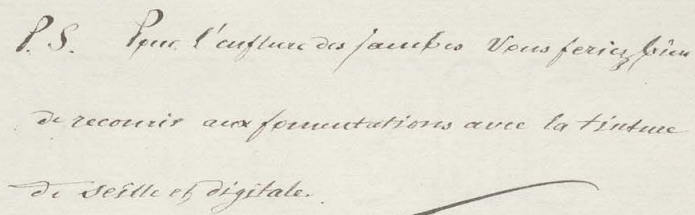 P. S. Pour l'enflure des jambes Vous feriez bien
de recourir aux fomentations avec la tinture
de scille et digitale.